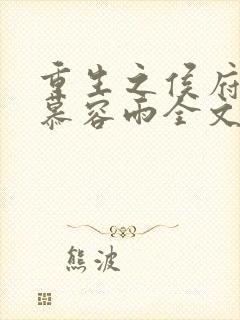 重生之侯府
慕容雨全文
熊波